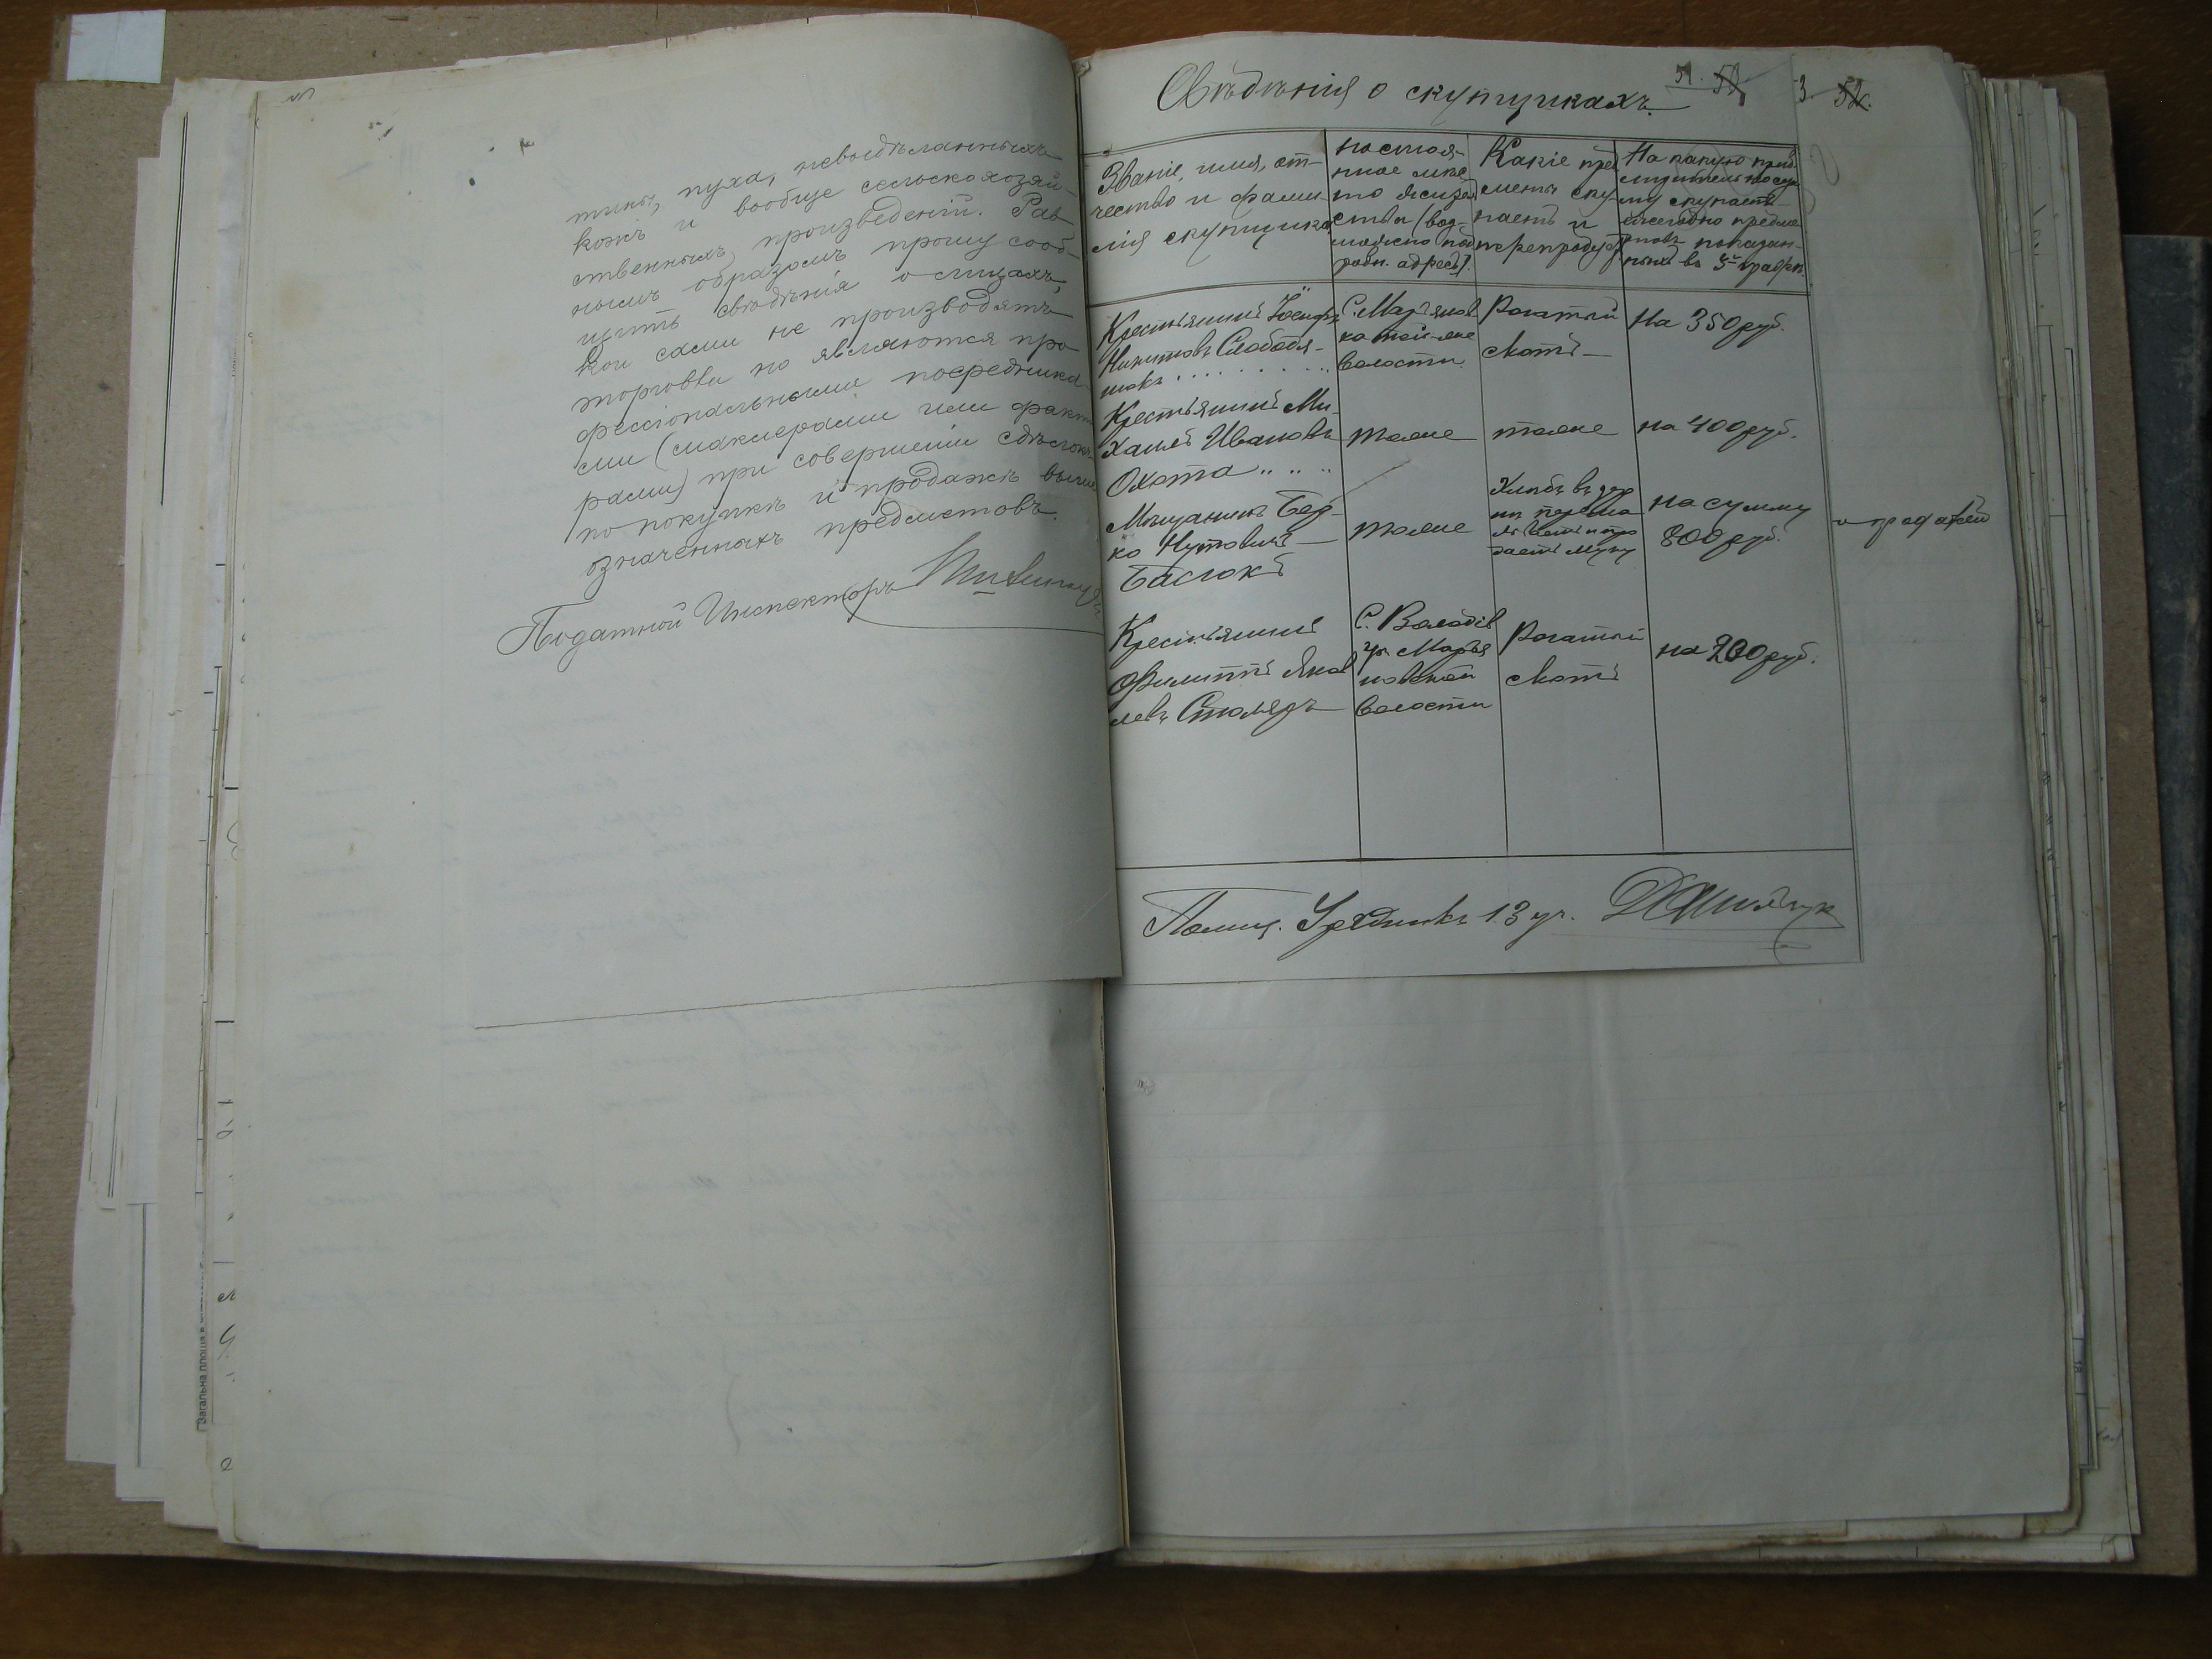 тины, пуха, невыдѣланныхъ
кожъ и вообще сельскохозяй-
ственныхъ произведеній. Рав-
нымъ образомъ прошу сооб-
щить свѣдѣнія о лицахъ,
кои сами не производятъ
торговли но являются про-
фессіональными посредника-
ми (маклерами или факто-
рами) при совершеніи сдѣлокъ
по покупкѣ и продажѣ выше
означенныхъ предметовъ.
Податной Инспекторъ
Свѣдѣнія о скупщикахъ.
51. 52
3. 52.
Званіе, имя, от-
чество и фами-
лія скупщика
Постоя-
нное мѣс
то жител
ства (воз-
можно под
робн. адресъ).
Какіе пред
меты ску
паетъ и
перепродаетъ
На какую приб
лизительно сум
му скупаетъ
ежегодно предме
товъ показан-
ныхъ въ 3й графѣ.
Крестьянинъ
Никитовъ Слободя-
нюкъ
С. Марьянов
ка той-же
волости.
Рогатый
скотъ —
На 350 руб.
Крестьянинъ Ми-
хаилъ Ивановъ
Охота
тоже
тоже
на 400 руб.
Мѣщанинъ Бер-
ко Нутовичъ —
Баслокъ
тоже
Хлѣбъ въ зер
нѣ перема
лываетъ и про
даетъ муку
на сумму
800 руб.
Крестьянинъ
Филиппъ Яков
левъ Столяръ —
С. Володів
ци Марья
новской
волости
Рогатый
скотъ
на 200 руб.
Полиц. Урядникъ 13 уч.